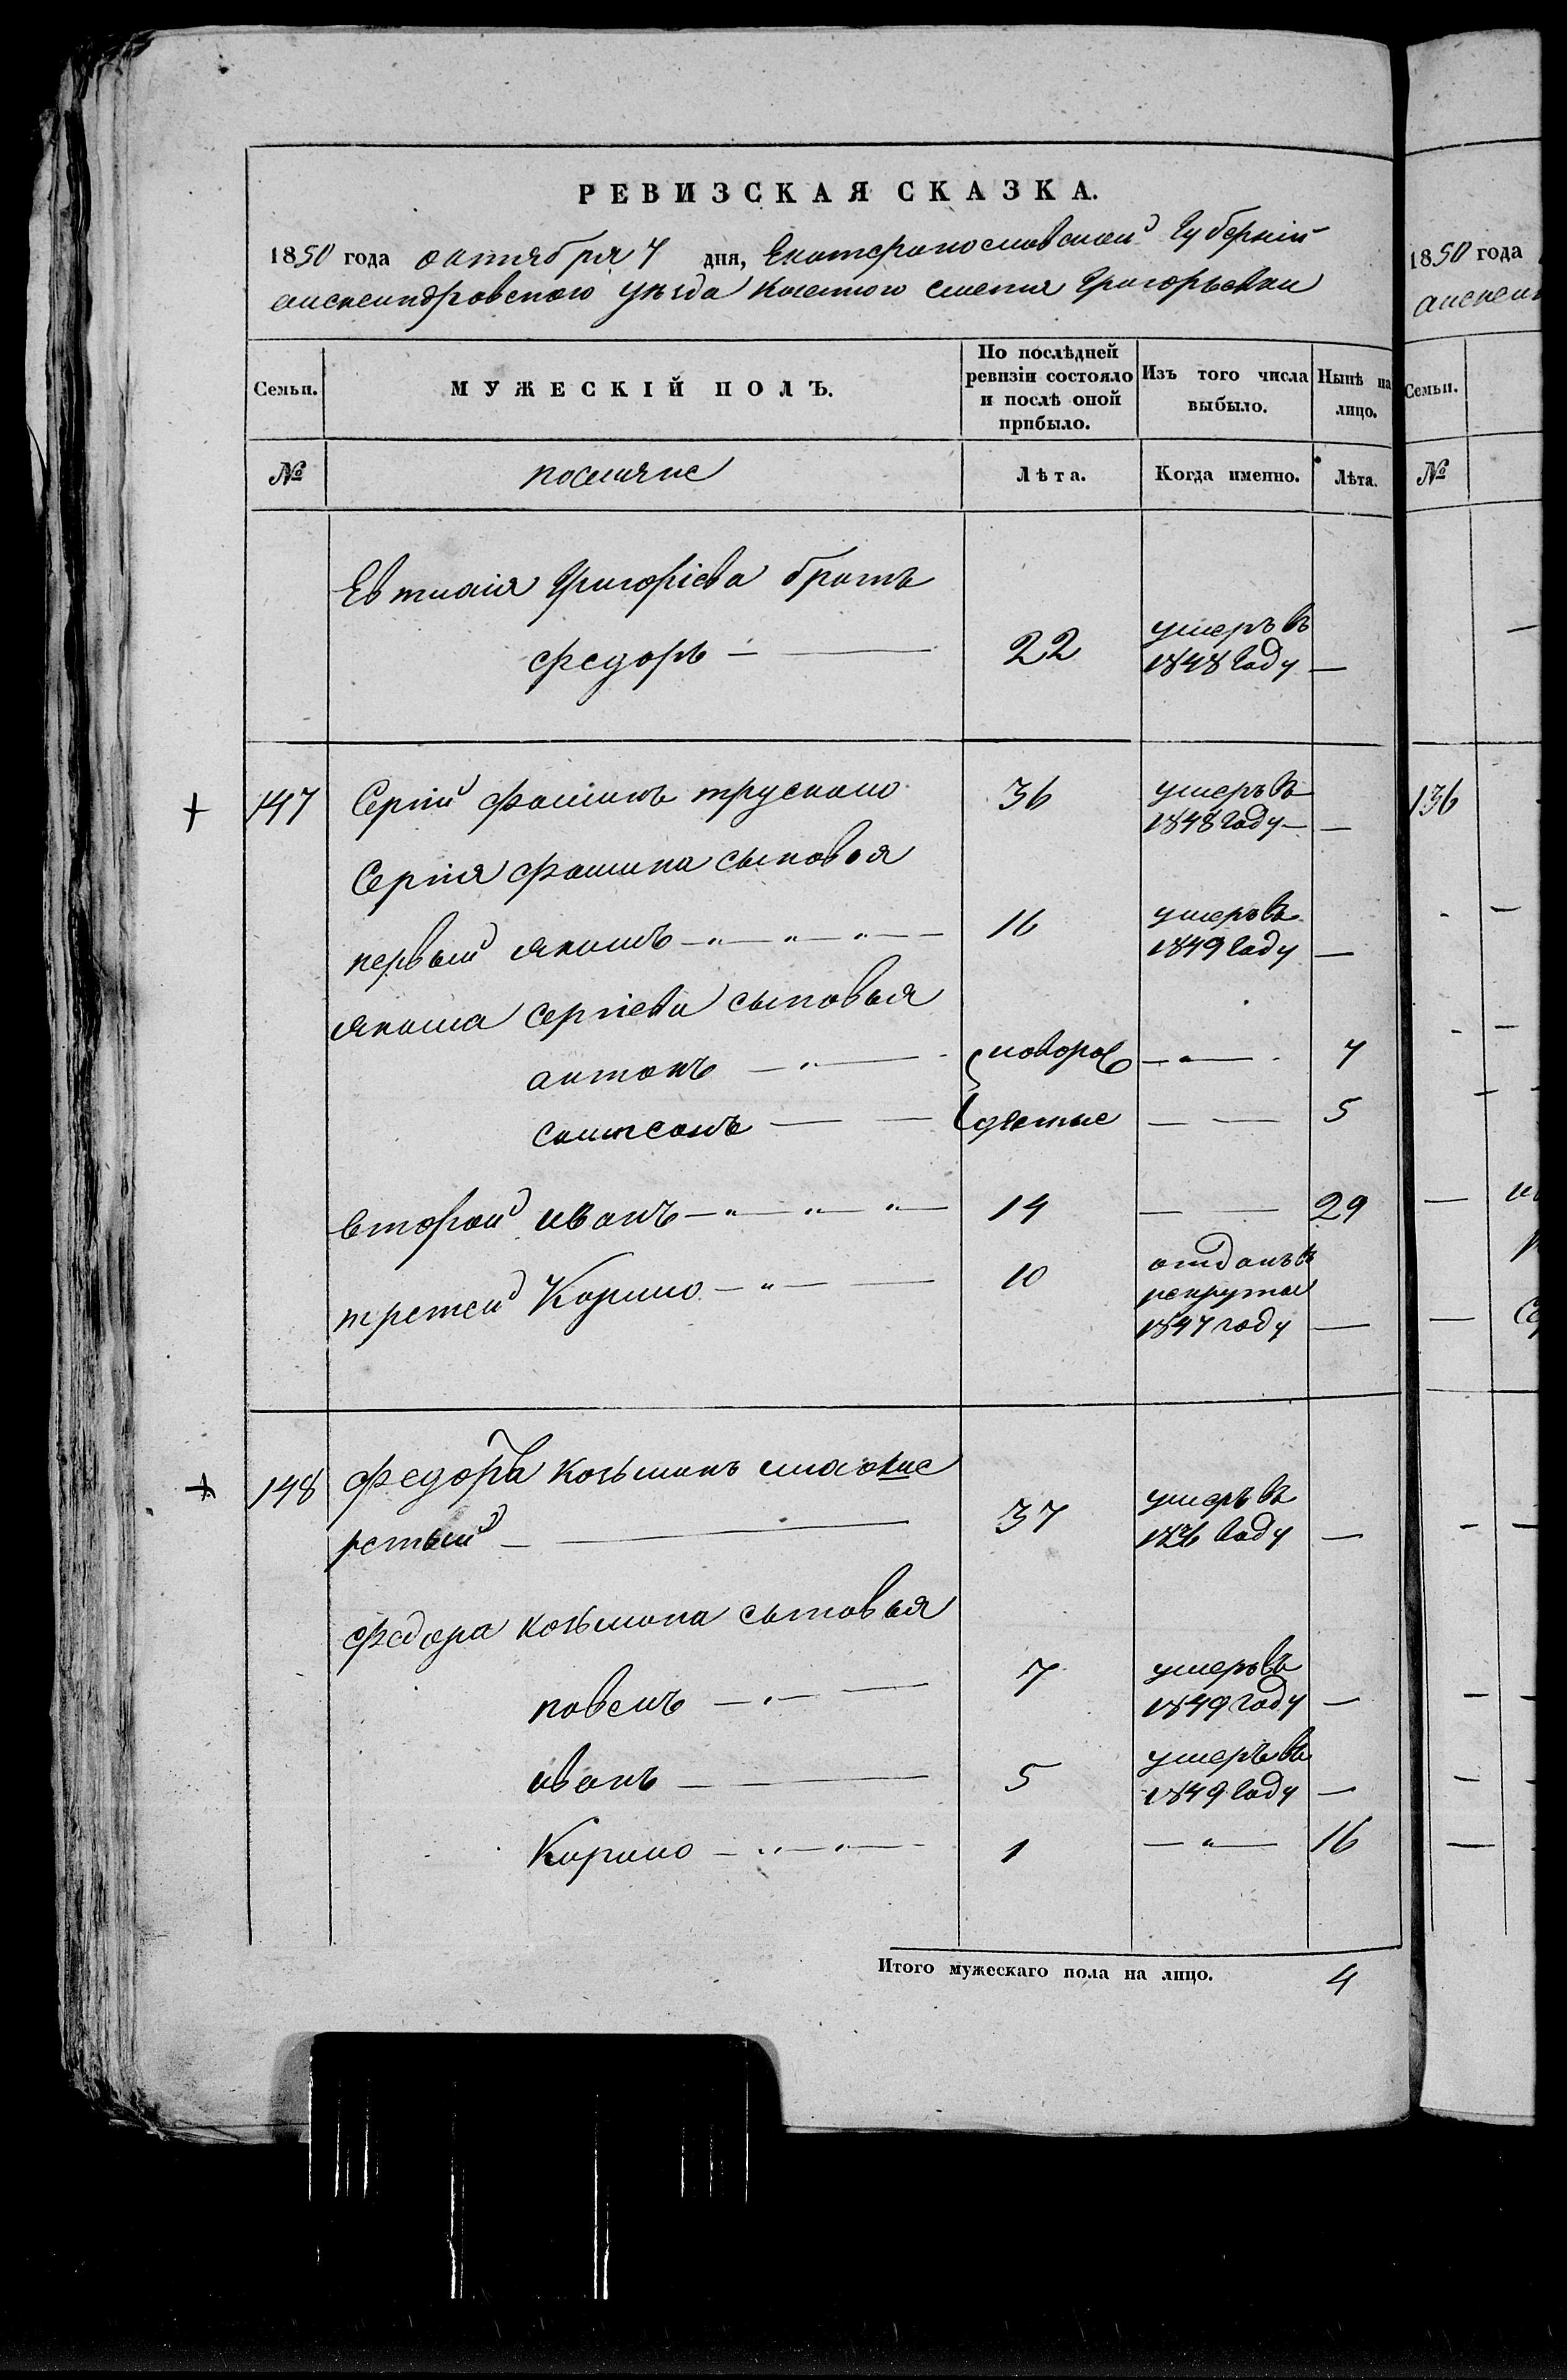 РЕВИЗСКАЯ СКАЗКА.
1850 года октября 7 дня, Екатеринославской Губерній
александровского уезда казенного селенія Григорьевки
Семьи. МУЖЕСКІЙ ПОЛЪ. По послѣдней ревизіи состояло и послѣ оной прибыло. Изъ того числа выбыло. Нынѣ на лицо.
№ поселяне Лѣта. Когда именно. Лѣта.
Григоріева братъ
федоръ 22 умеръ въ 1848 Году —
147 Сергій фоминъ 36 умеръ въ 1848 Году —
Сергія фомина сыновья
первый якимъ 16 умеръ въ 1849 Году —
якима сергіева сыновья
антонъ новоро 7
самсонъ жденные 5
второй иванъ 14 — 29
третей Кирило 10 отданъ въ рекруты 1847 году —
148 федоръ козьминъ
37 умеръ въ Году —
федора козьмина сыновья
павелъ 7 умеръ въ 1849 году —
иванъ 5 умеръ въ 1849 Году —
Кирило 1 — 16
Итого мужескаго пола на лицо. 4
1850 года
Семьи.
№
136